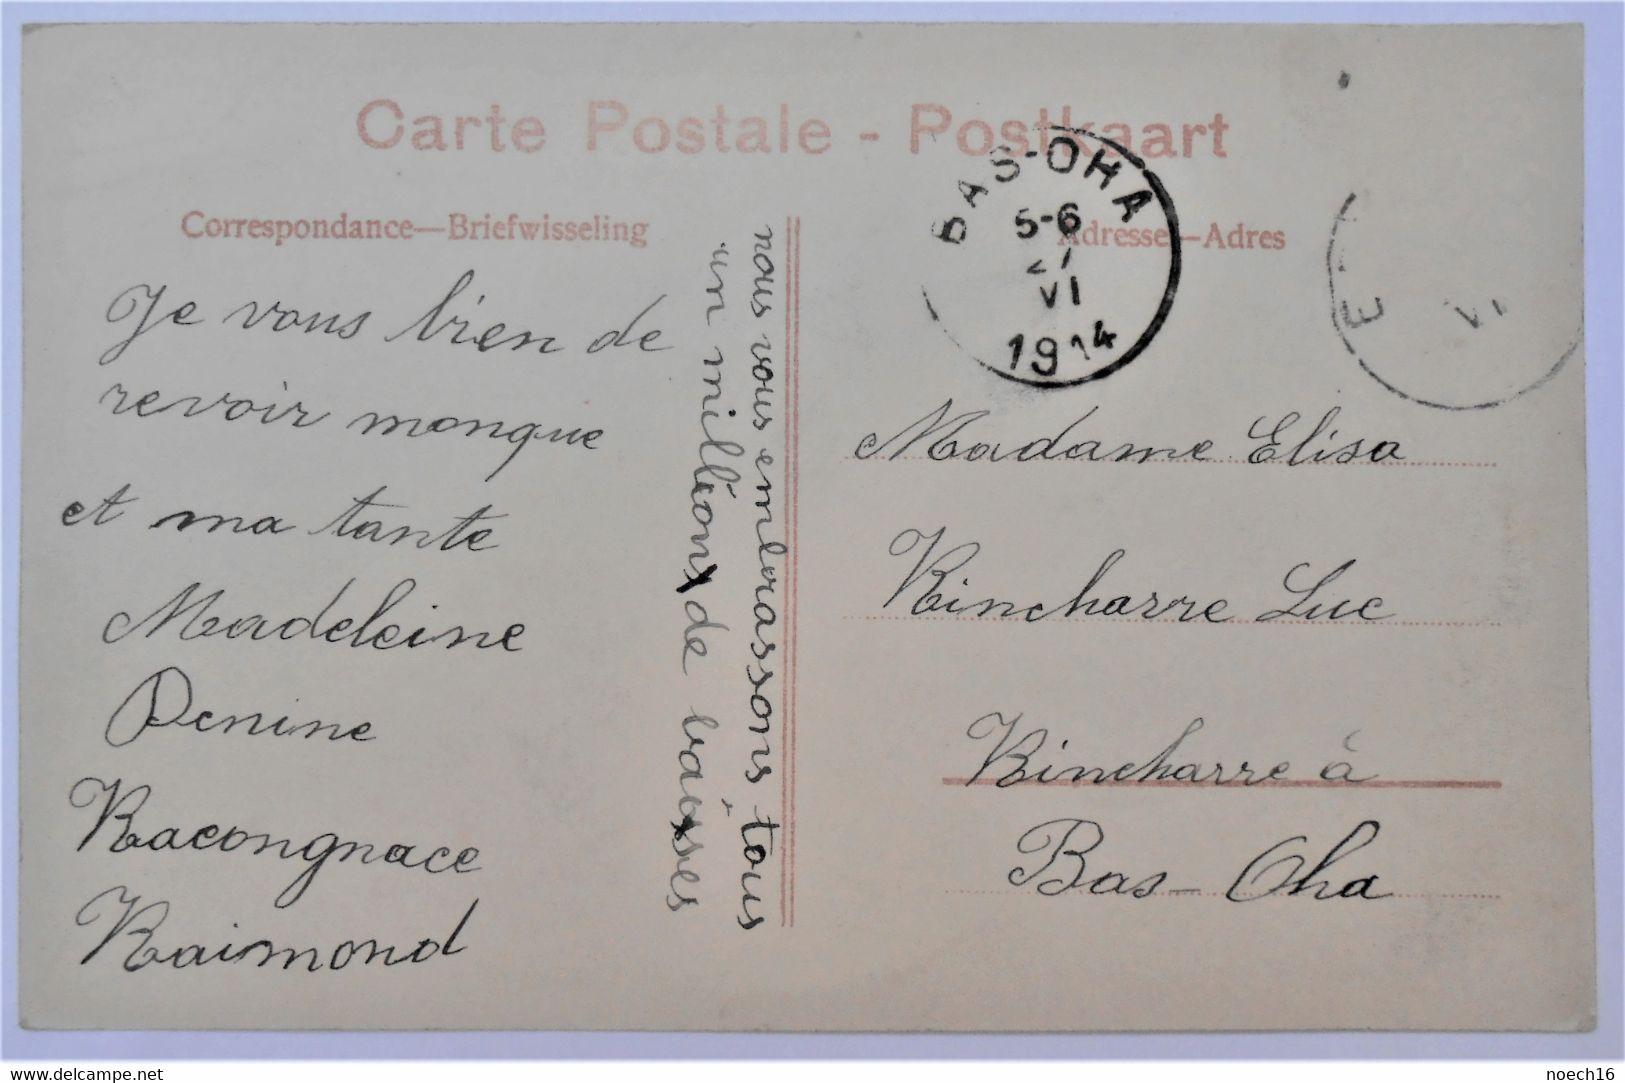 Carte Postale - Postkaart
Correspondance—Briefwisseling
Adresse—Adres
BAS-OHA
5-6
VI
1914
E
VI
Je vous bien de
revoir monque
et ma tante
Madeleine
Denine
Racongnace
Raimond
nous vous embrassons tous
un millions de baises
Madame Elisa
Kincharre Luc
Kincharre à
Bas-Oha
www.delcampe.net
noech16